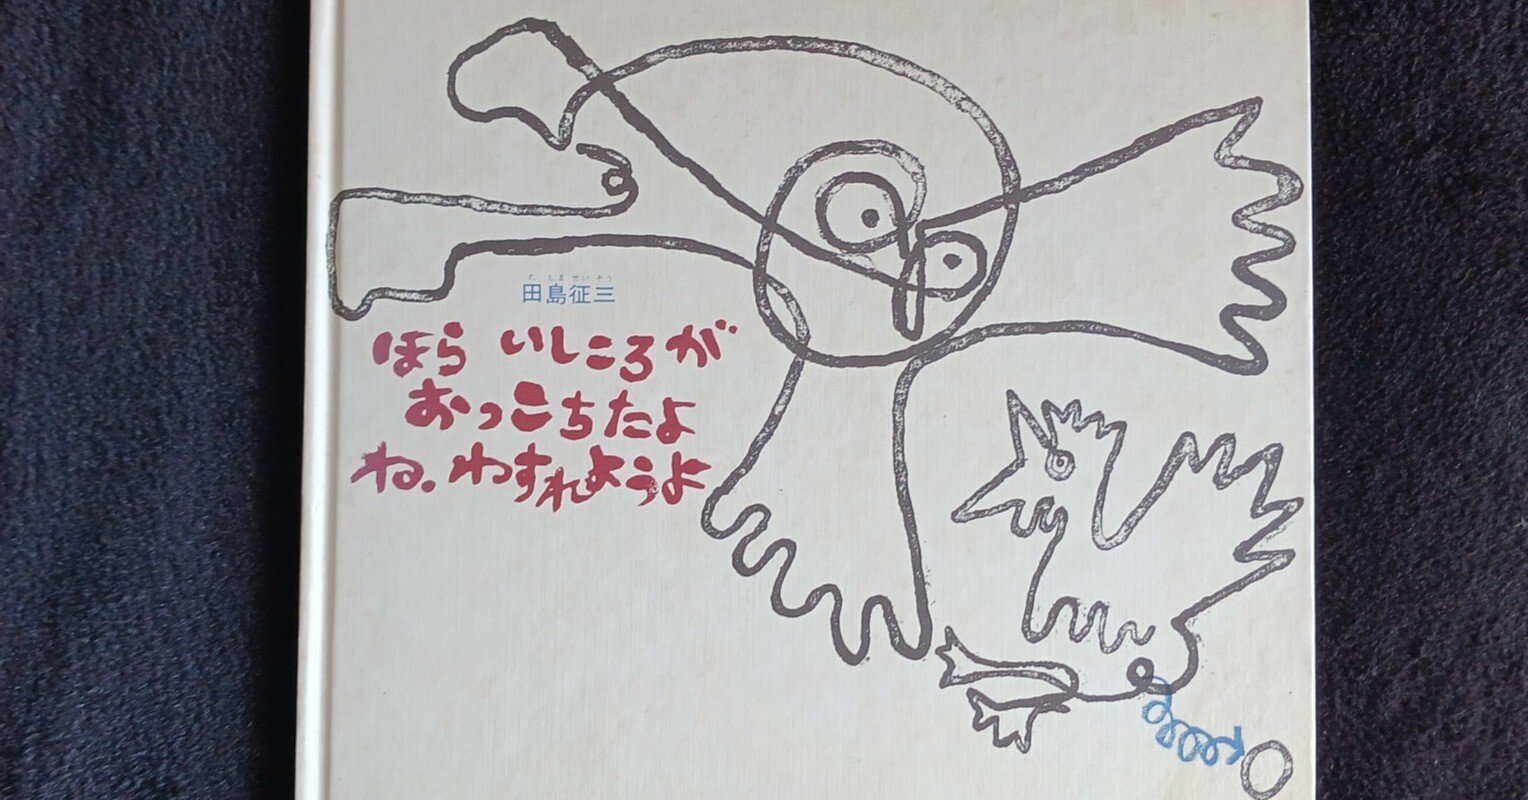 た しま せい ぞう
田島征三
ほら いしころが
おっこちたよ
ね。わすれようよ